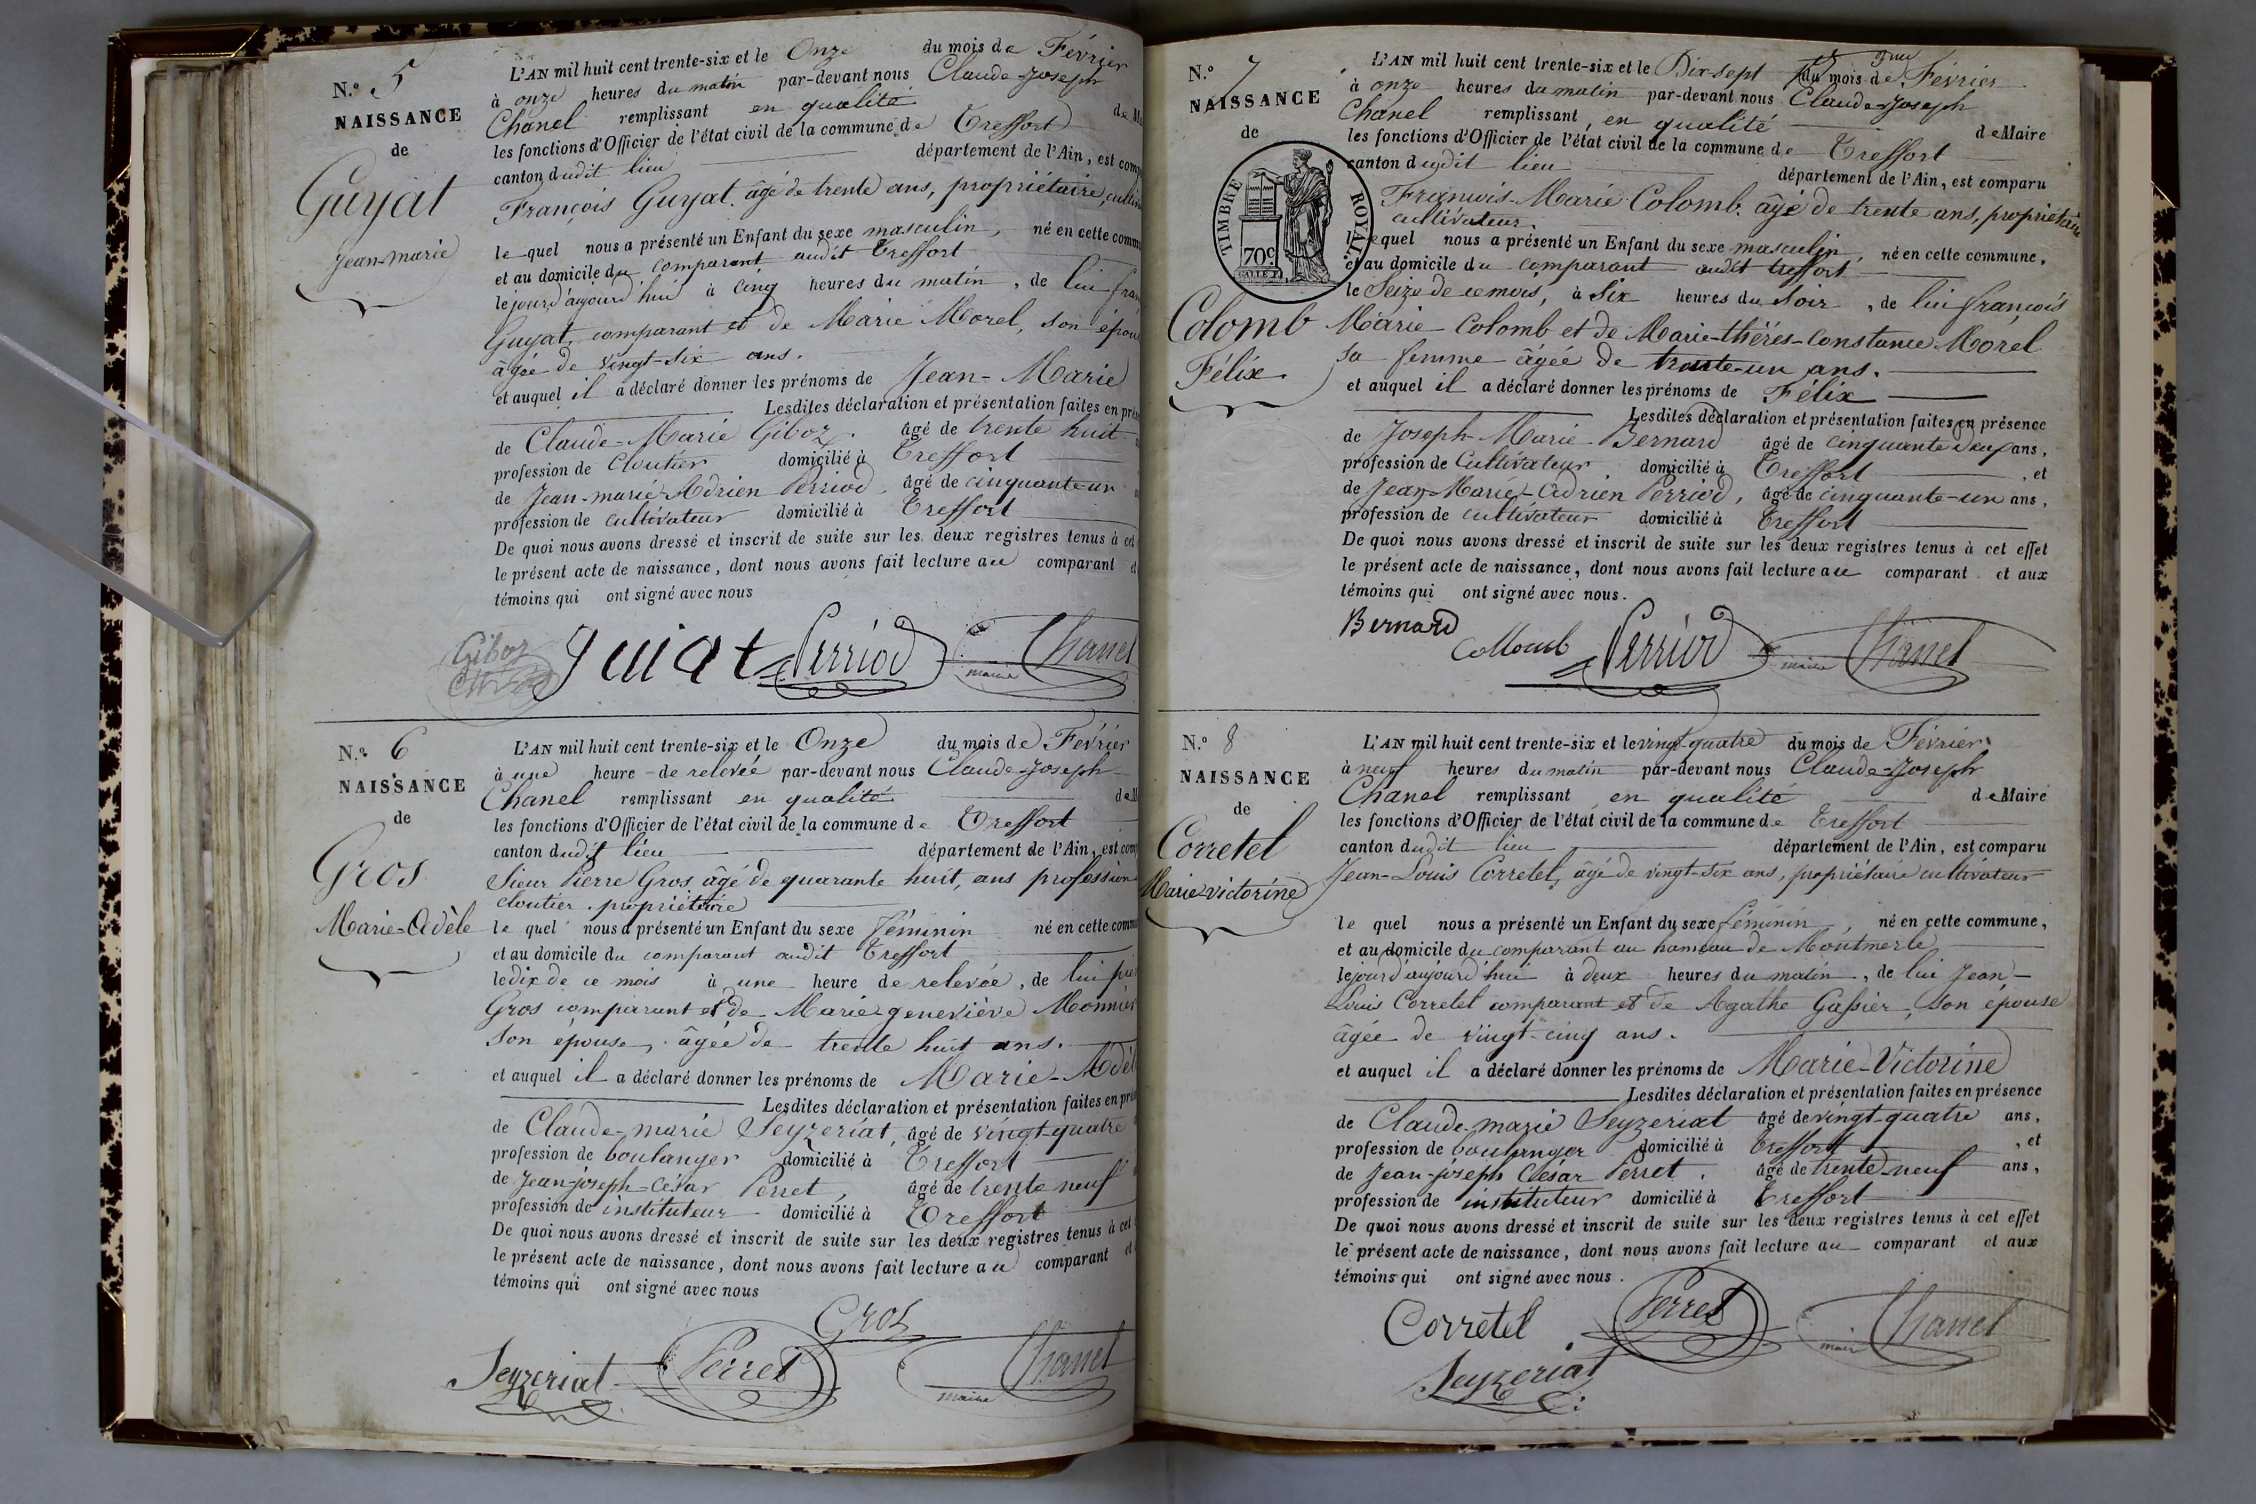 N.° 5
NAISSANCE
de
Guyat
Jean-marie
L'AN mil huit cent trente-six et le Onze du mois de Février
à onze heures du matin par-devant nous Claude-Joseph
Chanel remplissant en qualité de
les fonctions d'Officier de l'état civil de la commune de Treffort
canton dudit lieu département de l'Ain, est
François Guyat. âgé de trente ans, propriétaire,
le quel nous a présenté un Enfant du sexe masculin, né en cette
et au domicile du comparant audit Treffort
le jour d'aujourd'hui à cinq heures du matin, de lui
Guyat, comparant et de Marie Morel, son
âgée de vingt-six ans.
et auquel il a déclaré donner les prénoms de Jean-Marie
Lesdites déclaration et présentation faites en
de Claude-Marie Giboz. âgé de trente huit
profession de cloutier domicilié à Treffort
de Jean-marie Adrien Perriod, âgé de cinquante-un
profession de cultivateur domicilié à Treffort
De quoi nous avons dressé et inscrit de suite sur les deux registres tenus à cet
le présent acte de naissance, dont nous avons fait lecture au comparant
témoins qui ont signé avec nous
Giboz guiat Perriod maire Chanel
N.° 6
NAISSANCE
de
Gros
Marie-Adèle
L'AN mil huit cent trente-six et le Onze du mois de Février
à une heure de relevée par-devant nous Claude-Joseph
Chanel remplissant en qualité de
les fonctions d'Officier de l'état civil de la commune de Treffort
canton dudit lieu département de l'Ain, est
Sieur Pierre Gros âgé de quarante huit, ans profession
cloutier. propriétaire
le quel nous a présenté un Enfant du sexe féminin né en cette
et au domicile du comparant audit Treffort
le dix de ce mois à une heure de relevée, de lui
Gros comparant et de Marie geneviève Monnier
son épouse, âgée de trente huit ans.
et auquel il a déclaré donner les prénoms de Marie-
Lesdites déclaration et présentation faites en
de Claude-marie Seyzeriat, âgé de vingt-quatre
profession de boulanger domicilié à Treffort
de Jean-joseph-César Perret, âgé de trente neuf
profession de instituteur domicilié à Treffort
De quoi nous avons dressé et inscrit de suite sur les deux registres tenus à cet
le présent acte de naissance, dont nous avons fait lecture au comparant
témoins qui ont signé avec nous
Gros
Seyzeriat Perret maire Chanel
N.° 7
NAISSANCE
de
TIMBRE ROYAL.
70c
Colomb
Félix
L'AN mil huit cent trente-six et le Dix-sept du mois de Février
à onze heures du matin par-devant nous Claude-Joseph
Chanel remplissant, en qualité de Maire
les fonctions d'Officier de l'état civil de la commune de Treffort
canton dudit lieu département de l'Ain, est comparu
François-Marie Colomb. âgé de trente ans, propriétaire
cultivateur.
le quel nous a présenté un Enfant du sexe masculin, né en cette commune,
et au domicile du comparant audit treffort
le Seize de ce mois, à Six heures du Soir, de lui françois
Marie Colomb et de Marie-thérés-constance Morel
sa femme âgée de trente-un ans.
et auquel il a déclaré donner les prénoms de Félix
Lesdites déclaration et présentation faites en présence
de Joseph-Marie Bernard âgé de cinquante deux ans,
profession de Cultivateur domicilié à Treffort, et
de Jean-Marie-Adrien Perriod, âgé de cinquante-un ans,
profession de cultivateur domicilié à Treffort
De quoi nous avons dressé et inscrit de suite sur les deux registres tenus à cet effet
le présent acte de naissance, dont nous avons fait lecture au comparant et aux
témoins qui ont signé avec nous.
Bernard Perriod maire Chanel
N.° 8
NAISSANCE
de
Corretel
Marie-victorine
L'AN mil huit cent trente-six et le vingt-quatre du mois de Février
à neuf heures du matin par-devant nous Claude-Joseph
Chanel remplissant en qualité de Maire
les fonctions d'Officier de l'état civil de la commune de Treffort
canton dudit lieu département de l'Ain, est comparu
Jean-Louis Corretel, âgé de vingt-six ans, propriétaire cultivateur
le quel nous a présenté un Enfant du sexe féminin, né en cette commune,
et au domicile du comparant au hameau de Montmerle
le jour d'aujourd'hui à deux heures du matin, de lui Jean-
Louis Corretel comparant et de Agathe Gassier, son épouse
âgée de vingt-cinq ans.
et auquel il a déclaré donner les prénoms de Marie-Victorine
Lesdites déclaration et présentation faites en présence
de Claude-marie Seyzeriat âgé de vingt-quatre ans,
profession de boulanger domicilié à treffort, et
de Jean-joseph César Perret. âgé de trente-neuf ans,
profession de instituteur domicilié à Treffort
De quoi nous avons dressé et inscrit de suite sur les deux registres tenus à cet effet
le présent acte de naissance, dont nous avons fait lecture au comparant et aux
témoins qui ont signé avec nous.
Corretel Perret maire Chanel
Seyzeriat